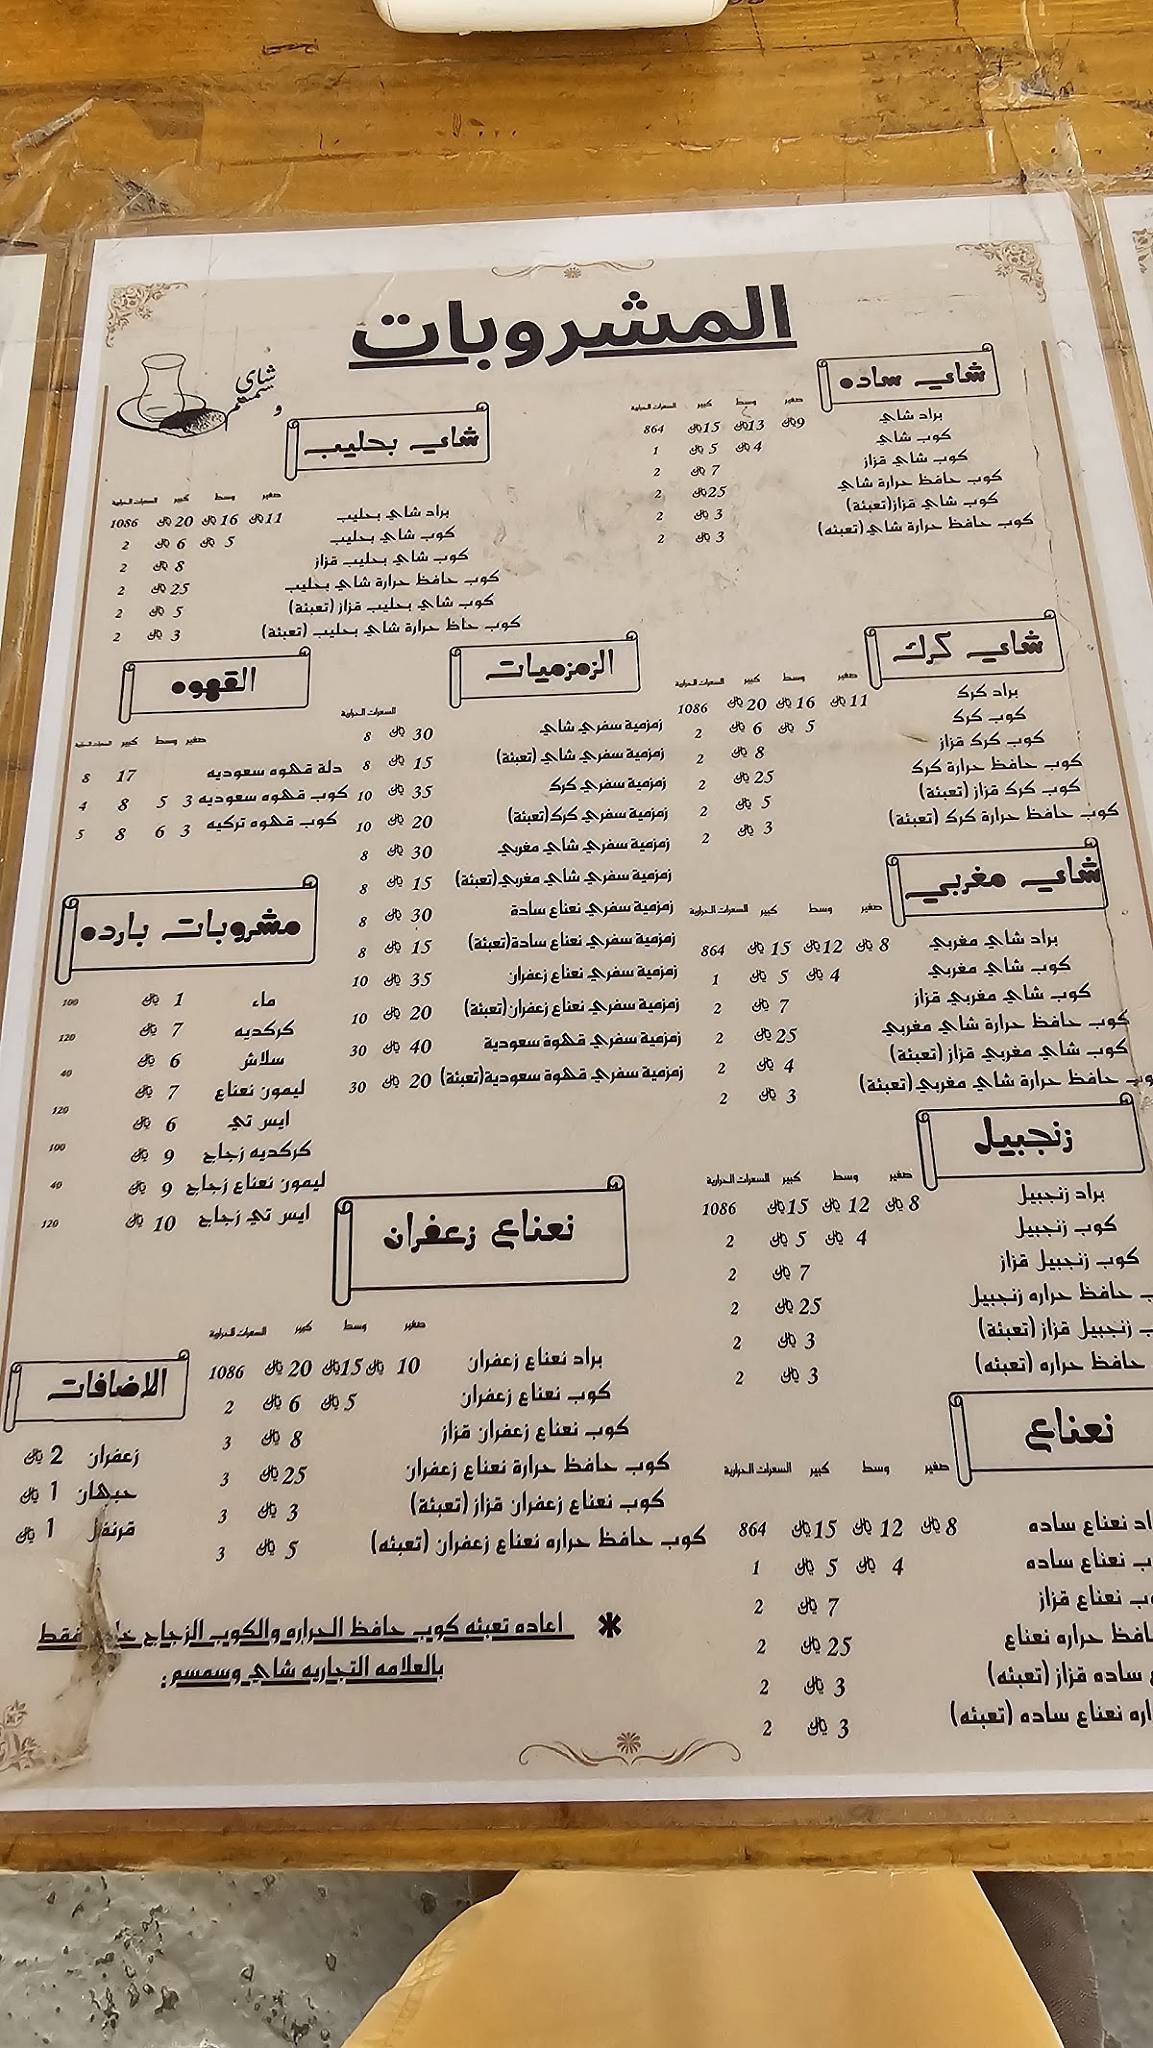 المشروبات
شاي و سمسم
شاي ساده
صغير وسط كبير السعرات الحرارية
براد شاي 9 13 15 864
كوب شاي 4 5 1
كوب شاي قزاز 7 2
كوب حافظ حرارة شاي 25 2
كوب شاي قزاز(تعبئة) 3 2
كوب حافظ حرارة شاي (تعبئه) 3 2
شاي بحليب
صغير وسط كبير السعرات الحرارية
براد شاي بحليب 11 16 20 1086
كوب شاي بحليب 5 6 2
كوب شاي بحليب قزاز 8 2
كوب حافظ حرارة شاي بحليب 25 2
كوب شاي بحليب قزاز (تعبئة) 5 2
كوب حاظ حرارة شاي بحليب (تعبئة) 3 2
شاي كرك
صغير وسط كبير السعرات الحرارية
براد كرك 11 16 20 1086
كوب كرك 5 6 2
كوب كرك قزاز 8 2
كوب حافظ حرارة كرك 25 2
كوب كرك قزاز (تعبئة) 5 2
كوب حافظ حرارة كرك (تعبئة) 3 2
الزمزميات
السعرات الحرارية
زمزمية سفري شاي 30 8
زمزمية سفري شاي (تعبئة) 15 8
زمزمية سفري كرك 35 10
زمزمية سفري كرك(تعبئة) 20 10
زمزمية سفري شاي مغربي 30 8
زمزمية سفري شاي مغربي(تعبئة) 15 8
زمزمية سفري نعناع سادة 30 8
زمزمية سفري نعناع سادة(تعبئة) 15 8
زمزمية سفري نعناع زعفران 35 10
زمزمية سفري نعناع زعفران(تعبئة) 20 10
زمزمية سفري قهوة سعودية 40 30
زمزمية سفري قهوة سعودية(تعبئة) 20 30
القهوه
صغير وسط كبير
دلة قهوه سعوديه 17 8
كوب قهوه سعوديه 3 5 8 4
كوب قهوه تركيه 3 6 8 5
شاي مغربي
صغير وسط كبير السعرات الحرارية
براد شاي مغربي 8 12 15 864
كوب شاي مغربي 4 5 1
كوب شاي مغربي قزاز 7 2
كوب حافظ حرارة شاي مغربي 25 2
كوب شاي مغربي قزاز (تعبئة) 4 2
حافظ حرارة شاي مغربي(تعبئة) 3 2
مشروبات بارده
ماء 1 100
كركديه 7 120
سلاش 6 40
ليمون نعناع 7
ايس تي 6 120
كركديه زجاج 9 100
ليمون نعناع زجاج 9 40
ايس تي زجاج 10 120
زنجبيل
صغير وسط كبير السعرات الحرارية
براد زنجبيل 8 12 15 1086
كوب زنجبيل 4 5 2
كوب زنجبيل قزاز 7 2
حافظ حراره زنجبيل 25 2
زنجبيل قزاز (تعبئة) 3 2
حافظ حراره (تعبئه) 3 2
نعناع زعفران
صغير وسط كبير السعرات الحرارية
براد نعناع زعفران 10 15 20 1086
كوب نعناع زعفران 5 6 2
كوب نعناع زعفران قزاز 8 3
كوب حافظ حرارة نعناع زعفران 25 3
كوب نعناع زعفران قزاز (تعبئة) 3 3
كوب حافظ حراره نعناع زعفران (تعبئه) 5 3
الاضافات
زعفران 2
حبهان 1
قرنفل 1
نعناع
صغير وسط كبير السعرات الحرارية
نعناع ساده 8 12 15 864
نعناع ساده 4 5 1
نعناع قزاز 7 2
حراره نعناع 25 2
ساده قزاز (تعبئه) 3 2
نعناع ساده (تعبئه) 3 2
* اعاده تعبئه كوب حافظ الحراره والكوب الزجاج فقط
بالعلامه التجاريه شاي وسمسم.